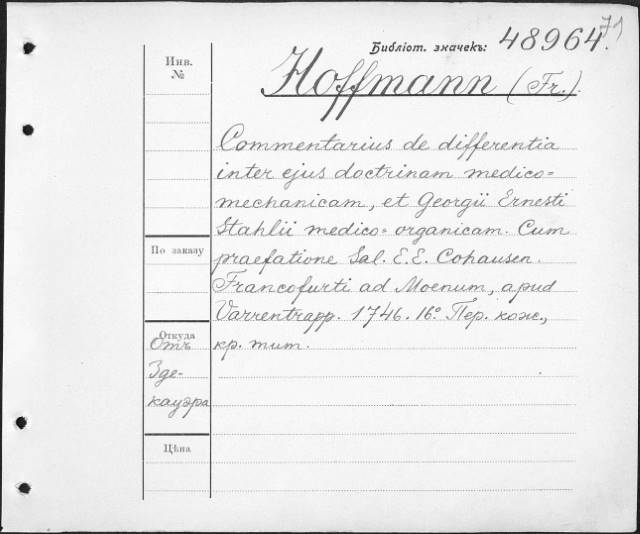 71
Библіот. значекъ: 48964.
Инв.
№
Hoffmann (Fr.).
Commentarius de differentia
inter ejus doctrinam medico=
mechanicam, et Georgii Ernesti
Stahlii medico=organicam. Cum
По заказу
praefatione Sal. E.E. Cohausen.
Francofurti ad Moenum, apud
Varrentrapp. 1746. 16º. Пер. кож.,
Откуда
Отъ
кр. тит.
Зде-
кауэра
Цѣна